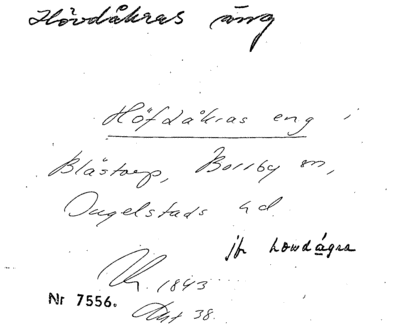 Hövdåkras äng
Höfdåkras eng i
Blästorp, Borrby sn,
Ingelstads hd.
jfr howdågra
1843
Nr 7556.
Akt 38.